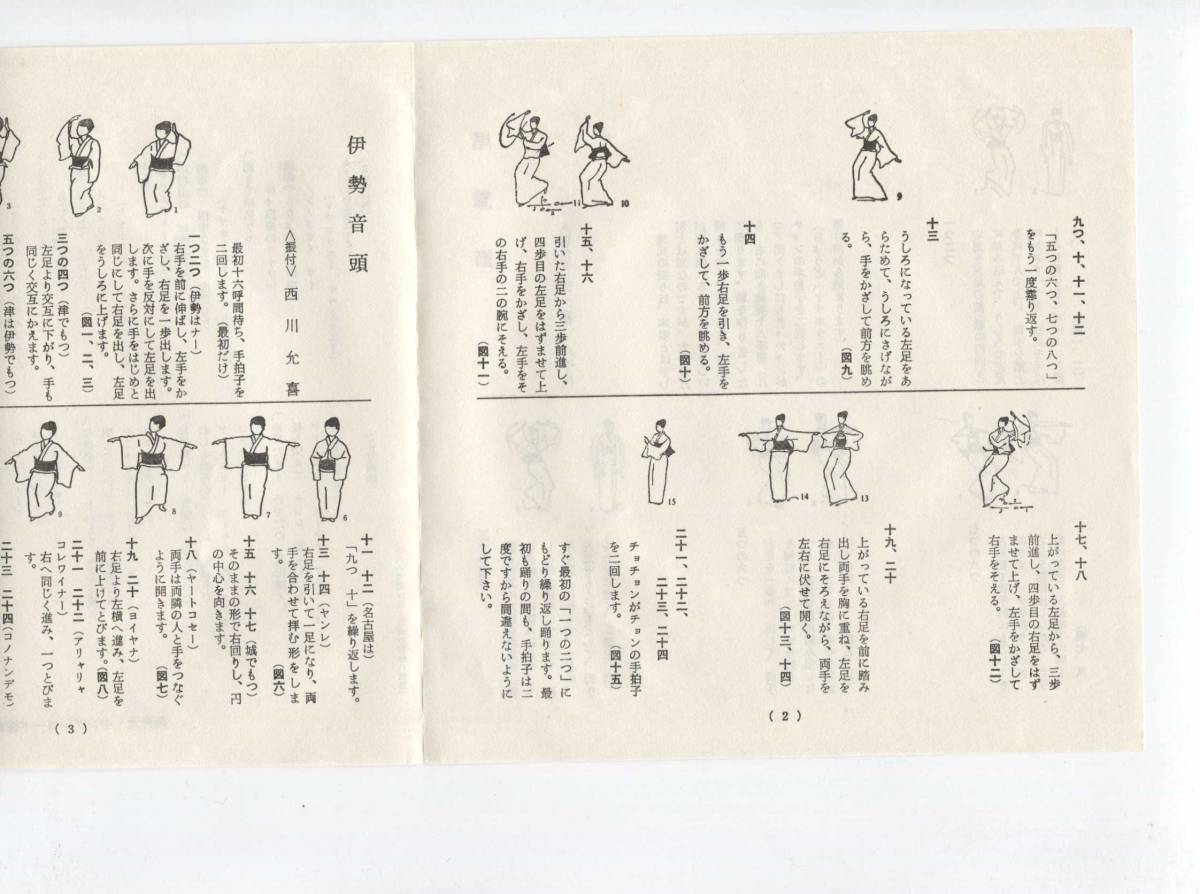 九つ、十、十一、十二
「五つの六つ、七つの八つ」
をもう一度繰り返す。
十三
うしろになっている左足をあ
らためて、うしろにさげなが
ら、手をかざして前方を眺め
る。
(図九)
9
十四
もう一歩右足を引き、左手を
かざして、前方を眺める。
(図十)
10
十五、十六
引いた右足から三歩前進し、
四歩目の左足をはずませて上
げ、右手をかざし、左手をそ
の右手の二の腕にそえる。
(図十一)
11
十七、十八
上がっている左足から、三歩
前進し、四歩目の右足をはず
ませて上げ、左手をかざして
右手をそえる。
(図十二)
十九、二十
上がっている右足を前に踏み
出し両手を胸に重ね、左足を
右足にそろえながら、両手を
左右に伏せて開く。
(図十三、十四)
13
14
二十一、二十二、
二十三、二十四
チョチョンがチョンの手拍子
を二回します。
(図十五)
15
すぐ最初の「一つの二つ」に
もどり繰り返し踊ります。最
初も踊りの間も、手拍子は二
度ですから間違えないように
して下さい。
(2)
伊勢音頭
<振付> 西川允喜
最初十六呼間待ち、手拍子を
二回します。(最初だけ)
一つ二つ(伊勢はナー)
右手を前に伸ばし、左手をか
ざし、右足を一歩出します。
次に手を反対にして左足を出
します。さらに手をはじめと
同じにして右足を出し、左足
をうしろに上げます。
(図一、二、三)
1
2
3
三つの四つ(津でもつ)
左足より交互に下がり、手も
同じく交互にかえます。
五つの六つ(津は伊勢でもつ)
十一 十二(名古屋は)
「九つ 十」を繰り返します。
十三 十四(ヤンレ)
右足を引いて一足になり、両
手を合わせて拝む形をしま
す。
(図六)
6
十五 十六 十七(城でもつ)
そのままの形で右回りし、円
の中心を向きます。
7
十八(ヤートコセー)
両手は両隣の人と手をつなぐ
ように開きます。
(図七)
8
十九 二十(ヨイヤナ)
右足より左横へ進み、左足を
前に上げてとびます。(図八)
9
二十一 二十二(アリャリャ
コレワイナー)
右へ同じく進み、一つとびま
す。
二十三 二十四(コノナンデモ)
(3)